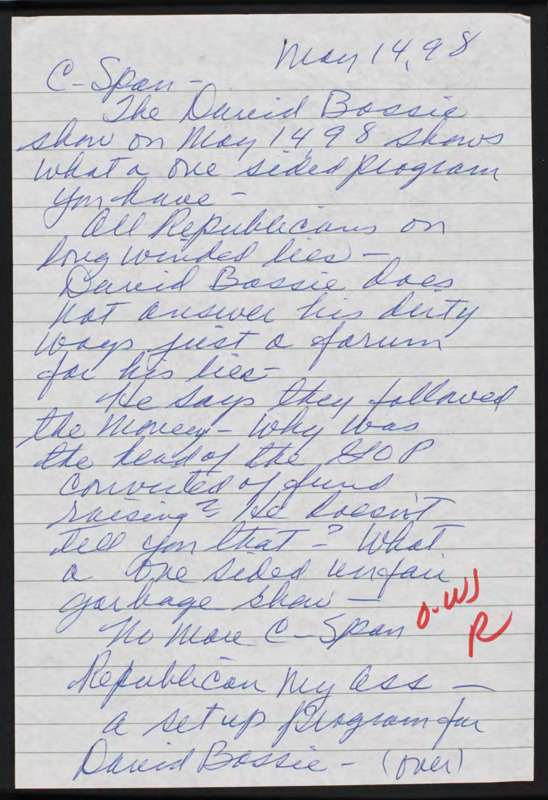 May 14, 98
C-Span -
The David Bossie
show on May 14 98 shows
what a one sided program
you have -
All Republicans on
long winded lies -
David Bossie does
not answer his dirty
ways just a forum
for his lies -
He says they followed
the money - Why was
the head of the GOP
convicted of fund
raising? He doesn't
tell you that - ? What
a one sided unfair
garbage show -
No more C-Span
O-WJ
R
Republican my ass -
a set up program for
David Bossie - (over)